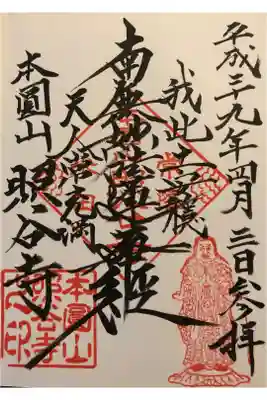 平成二九年四月三日参拝
我此土安穏
南無妙法蓮華経
天人常充満
本圓山 照谷寺
本圓山
照谷寺
之印